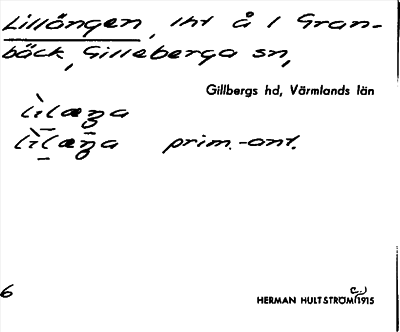 Lillängen, lht å 1 Gran-
bäck, Gilleberga sn,
Gillbergs hd, Värmlands län
prim.-ant.
6
HERMAN HULTSTRÖM 1915